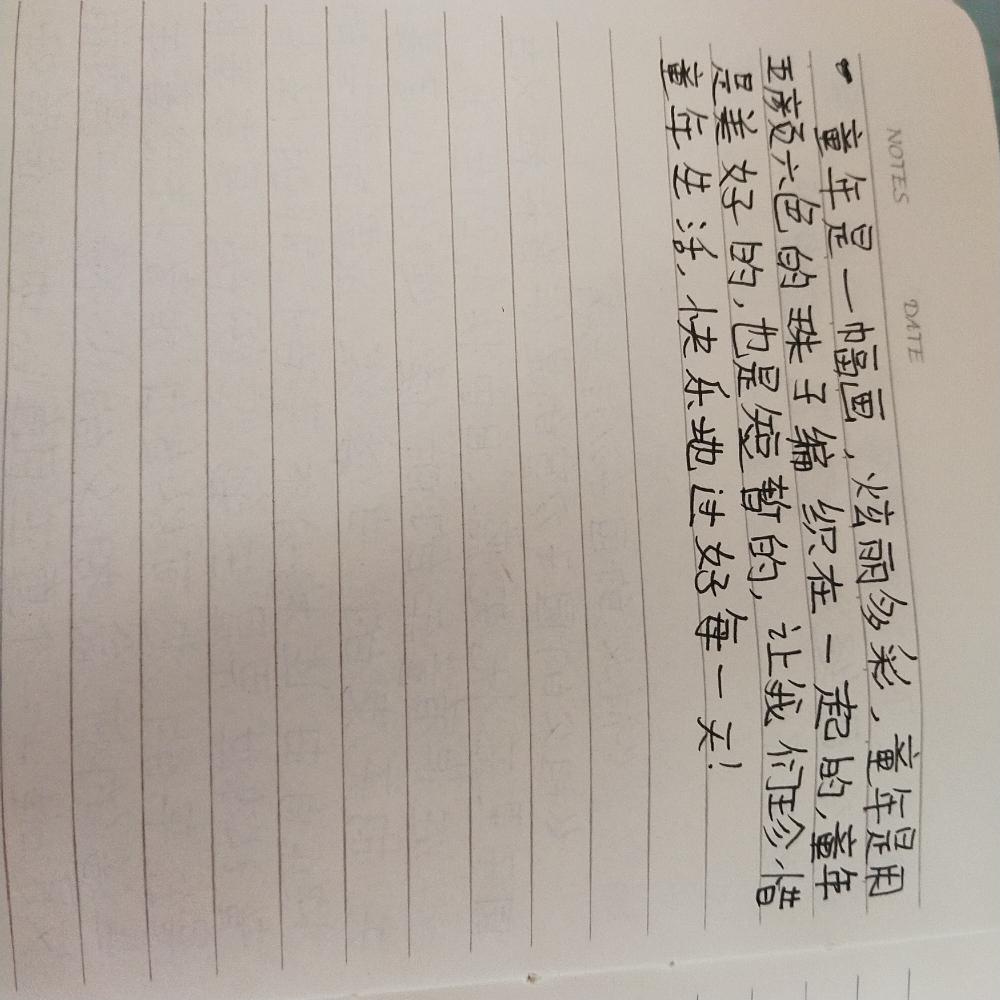 NOTES DATE
童年是一幅画，炫丽多彩、童年是用
五颜六色的珠子编织在一起的，童年
是美好的，也是短暂的，让我们珍惜
童年生活，快乐地过好每一天！